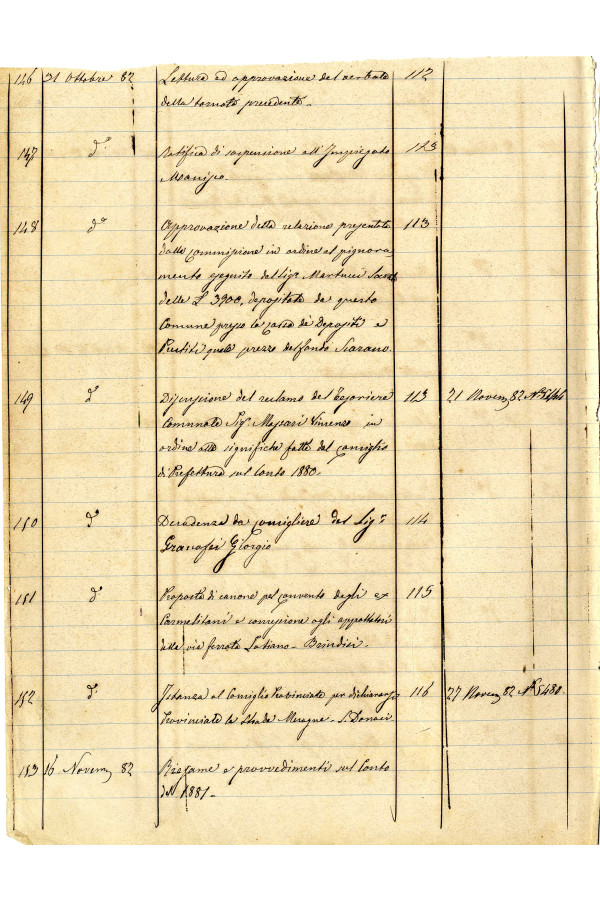 146 31 Ottobre 82 Lettura ed approvazione del verbale 112
della tornata precedente.
147 d.° Ratifica di sospensione all'Impiegato 113
148 d.° Approvazione della relazione presentata 113
dalla Commissione in ordine al pignora-
mento eseguito dal Sig.r Martucci
delle £ 3900, depositate da questo
Comune presso la Cassa de' Depositi e
Prestiti quale prezzo del fondo Scazano.
149 d.° Discussione del reclamo del Tesoriere 113 21 Novem 82 N.°
Comunale Sig.r Massari Vincenzo in
ordine alle significhe fatte dal Consiglio
di Prefettura sul Conto 1880.
150 d.° Decadenza da Consigliere del Sig.r 114
Granafei Giorgio
151 d.° Proposta di canone pel Convento degli ex 115
Carmelitani e concessione agli appaltatori
della via ferrata Latiano - Brindisi.
152 d.° Istanza al Consiglio Provinciale per dichiararsi 116 27 Novem 82 N.° 5480.
Provinciale la strada Mesagne - S. Donaci
153 16 Novem 82 Riesame e provvedimenti sul Conto
1881.